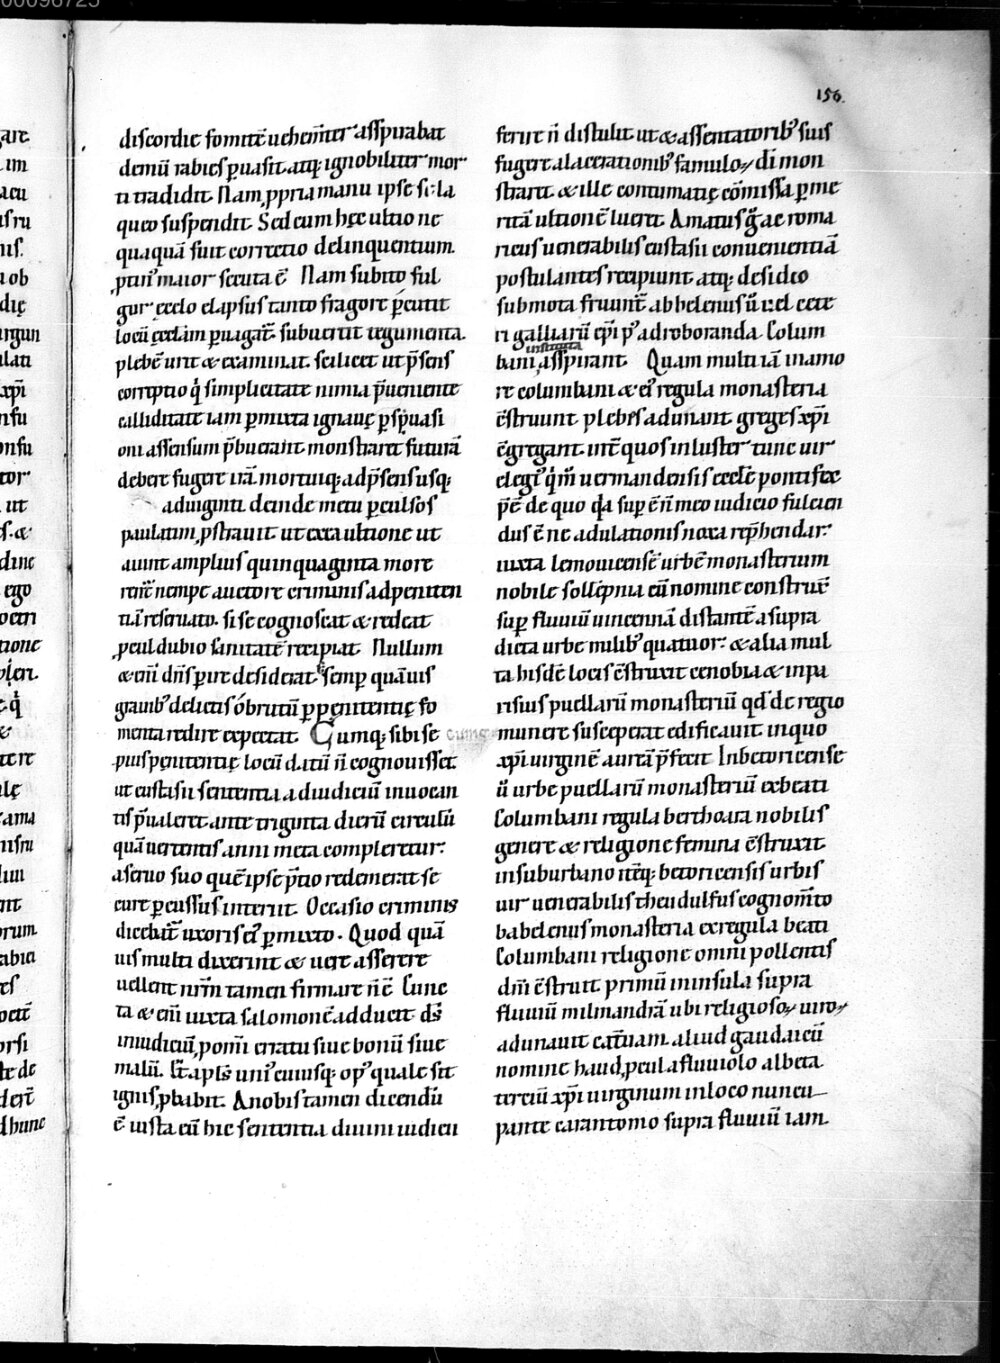 00098725
156.
discordie fomitē uehem̄ter asspirabat
demū rabies ꝑuasit. atq; ignobiliter mor
ti tradidit. Nam ꝓpria manu ipse se la
queo suspendit. Sed cum hęc ultio ne
quaquā fuit correctio delinquentium.
maior secuta ē. Nam subito ful
gur ęcelo elapsus tanto fragore p̄cutit
locū. subuertit tegumenta.
plebē urit & examinat. scilicet ut p̄sens
correptio q̄ simplicitate nimia p̄ueniente
calliditate iam ꝑmixta ignauę ꝑsuasi
oni assensum p̄buerant. monstraret futurā
debere fugere irā. mortuiq; ad p̄sens usq;
aduiginti deinde metu ꝑculsos
paulatim ꝓstrauit. ut cęca ultione ut
aiunt amplius quinquaginta more
nempe auctore criminis ad peniten
tiā reseruato. si se cognoscat & redeat
ꝓcul dubio sanitatē recipiat. Nullum
& eni dn̄s ꝑire desiderat. semꝑ quāuis
grauib; delictis obrutū ꝑ pęnitentię fo
menta redire expectat. Cumq; sibi se
cumq;
prius pęnitentię locū datū n̄ cognouisset
ut eustasii sententia adiudiciū inuocan
tis p̄ualeret. ante triginta dierū circulū
quā uertentis anni meta compleretur.
a seruo suo quē ipse p̄tio redemerat se
cure ꝑcussus interiit. Occasio criminis
dicebat̄ uxoris ei; ꝑmixto. Quod quā
uis multi dixerint & uere asserere
uellent nr̄m tamen firmare n̄ ē. Cunc
ta & eni iuxta salomonē adducit dс̄
iniudiciū, ꝓ om̄i erratu siue bonū siue
malū. uni; cuiusq; op; quale sit
ignis ꝓbabit. A nobis tamen dicendū
ē iusta eū hic sententia diuini iudicii
ferire n̄ distulit. ut & assentatorib; suis
fugere a lacerationib; famuloꝝ dī mon
straret. & ille contumatię cōmissa ꝑ me
ritā ultionē lueret. Amatus ḡ ac roma
ricus uenerabilis eustasii conuenientiā
postulantes recipiunt. atq; desidio
submota fruunt̄. abbelenus ū uel cete
ri galliarū ep̄i p; ad roboranda Colum
instituta
bani asspirant. Quam multi iā in amo
re columbani & ei; regula monasteria
c̄struunt. plebes adunant. greges xp̄i
c̄gregant. int̄ quos inluster tunc uir
elegi; q̄ m̄ uermandensis ecclę pontifex
pē. de quo q̄a suꝑ ē n̄ meo iudicio fulcien
dus ē. ne adulationis noxa rep̄hendar.
iuxta lemouicensē urbē monasterium
nobile sollēpnia eū nomine construx̄
suꝑ fluuiū uincennā. distantē a supra
dicta urbe milib; quatuor. & alia mul
ta hisdē locis c̄struxit cenobia. & in pa
risius puellarū monasteriū qd̄ de regio
munere susceperat edificauit. in quo
xp̄i uirginē aureā p̄fecit. In betoricense
ū urbe puellarū monasteriū ex beati
Columbani regula berthoara nobilis
genere & religione femina c̄struxit.
in suburbano itēq; betoricensis urbis
uir uenerabilis theudulfus cognom̄to
babelenus monasteria ex regula beati
Columbani religione omni pollentis
dm̄ c̄struit. primū in insula supra
fluuiū milmandrā. ubi religiosoꝝ uiroꝝ
adunauit cat̄uam. aliud gaudaicū
nomine. haud ꝓcul a fluuiolo albeta
terciū xp̄i uirginum in loco nuncu
pante carantomo supra fluuiū iam